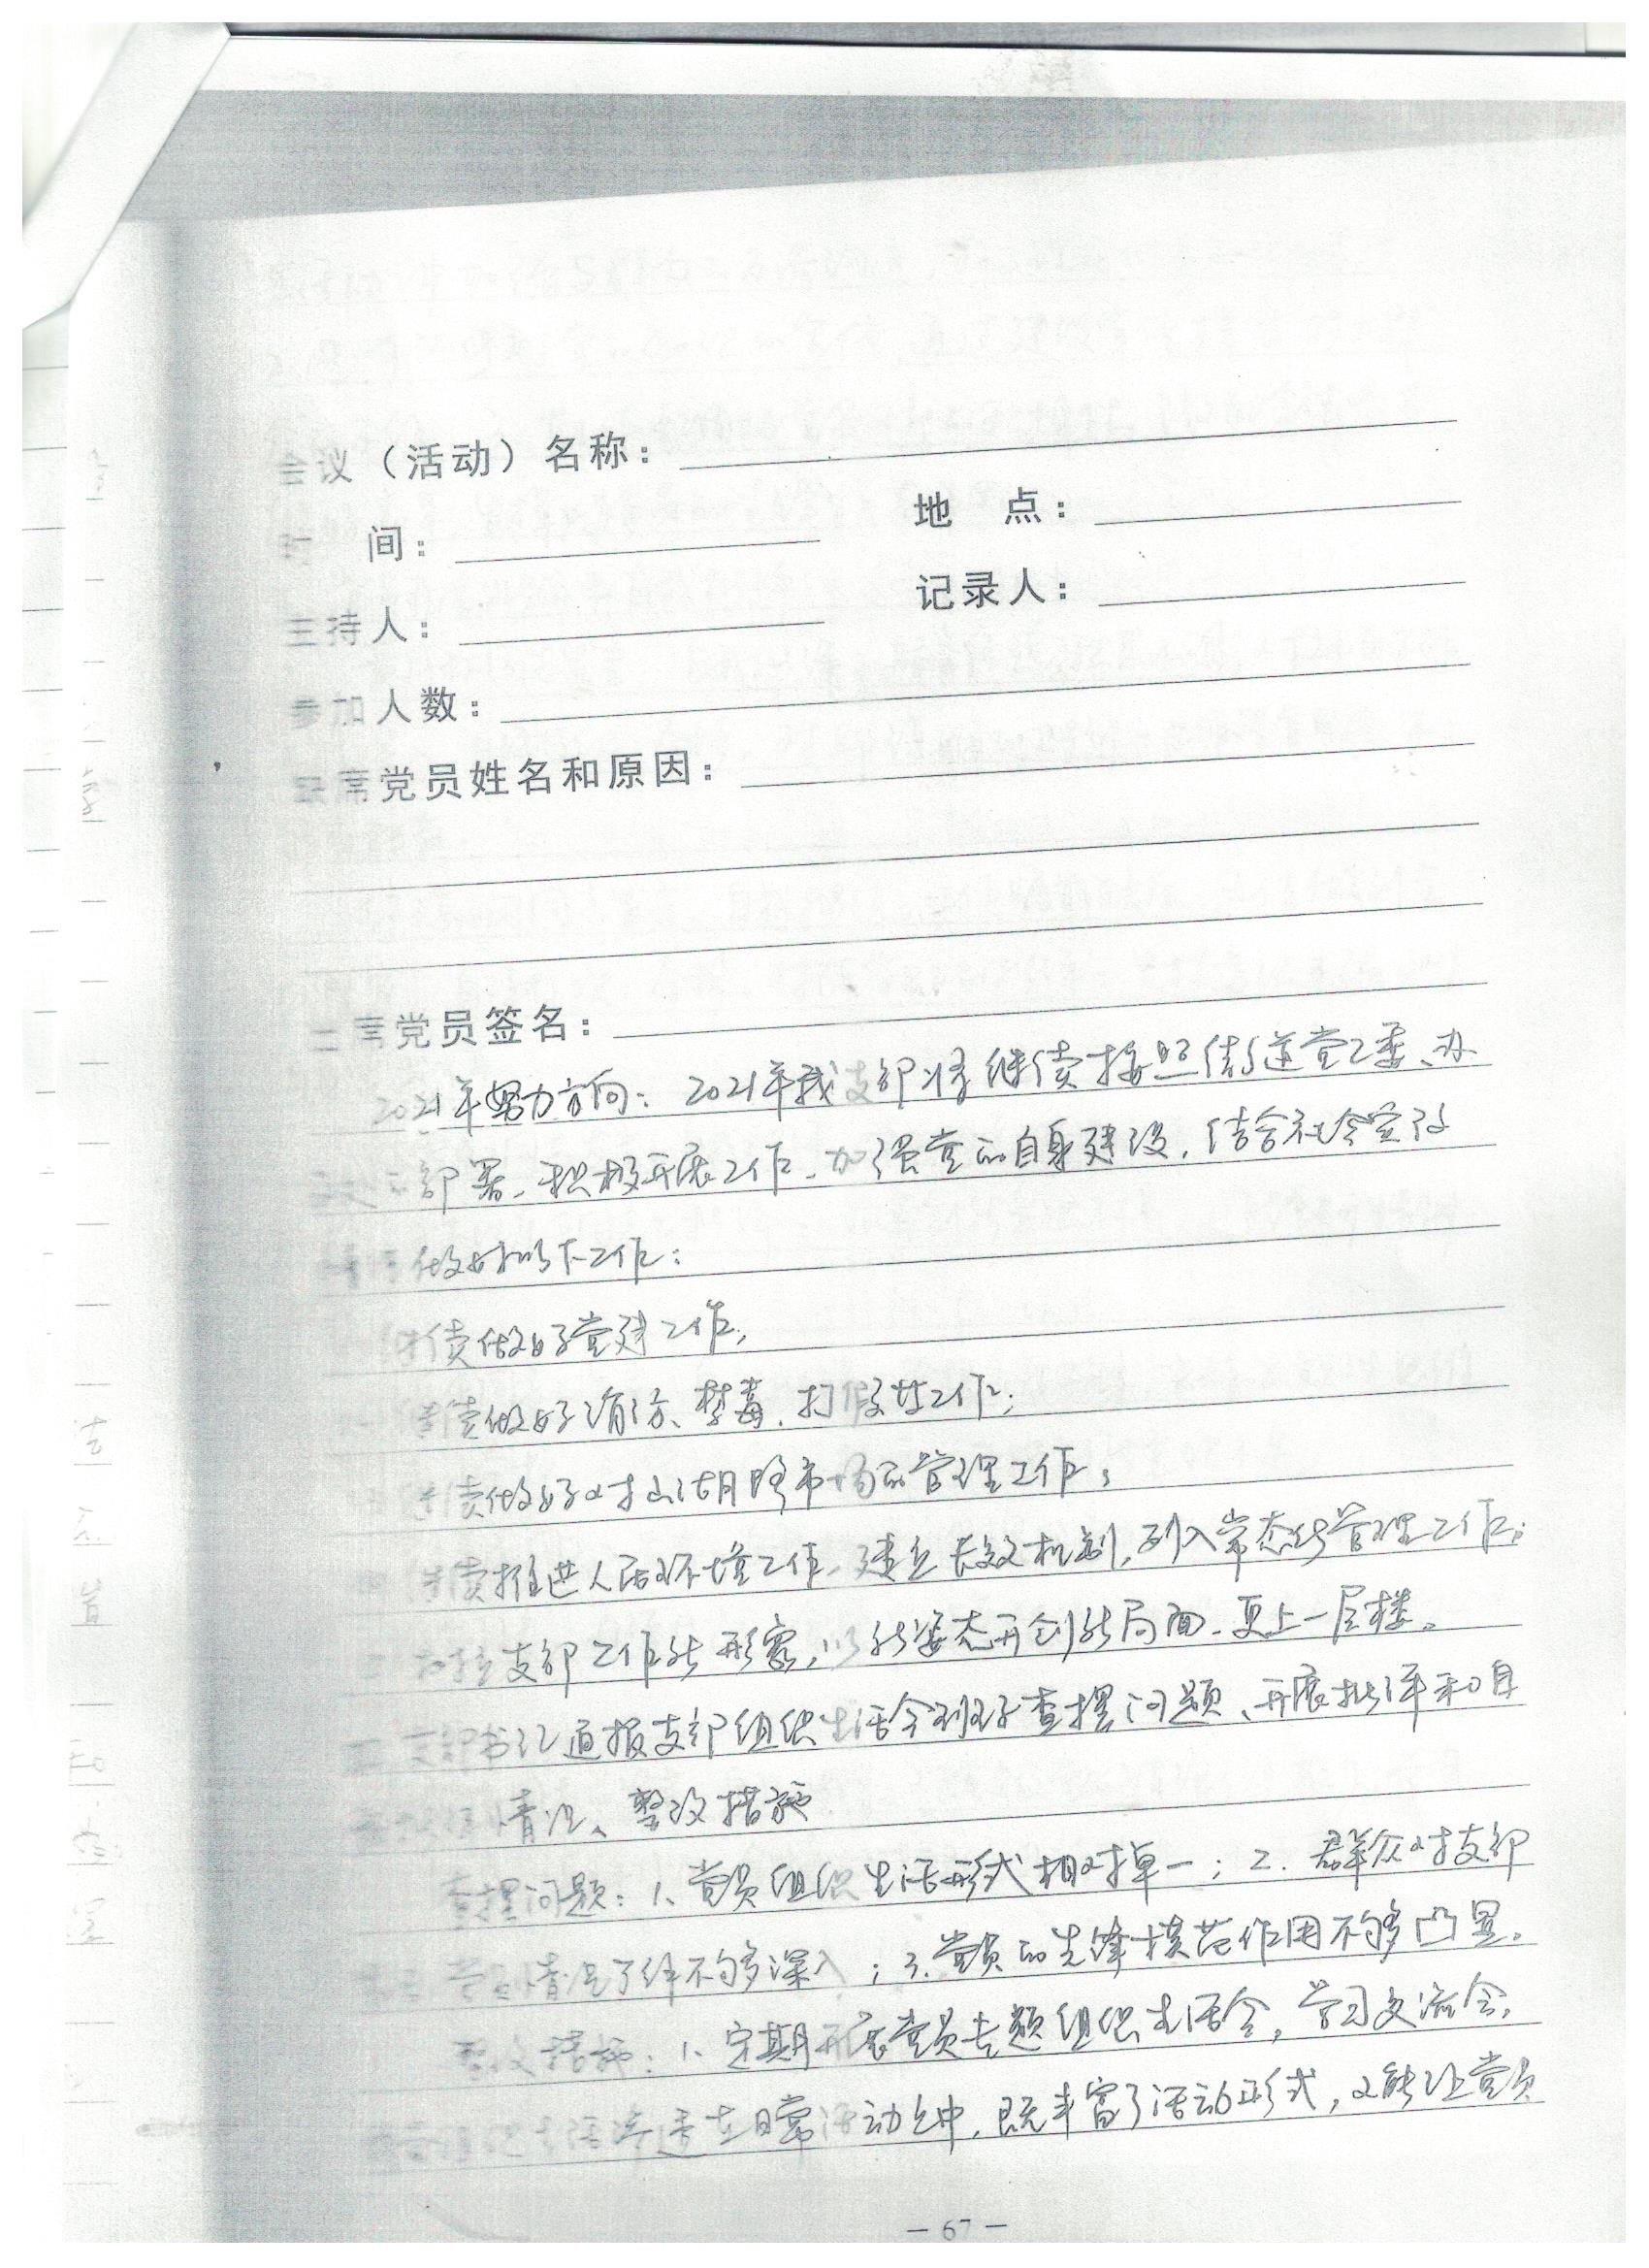 会议（活动）名称：
时 间： 地 点：
主持人： 记录人：
参加人数：
缺席党员姓名和原因：
出席党员签名：
2021年努力方向：2021年我支部将继续按照街道党工委、办
部署、积极开展工作、加强党的自身建设，结合社会
做好以下工作：
继续做好党建工作；
继续做好消防、禁毒、打假工作；
继续做好对山湖路市场的管理工作；
继续推进人居环境工作、建立长效机制，列入常态化管理工作；
支部工作新形象，以新姿态开创新局面、更上一层楼。
支部书记通报支部组织生活会班子查摆问题、开展批评和自
情况、整改措施
查摆问题：1、党员组织生活形式相对单一；2、群众对支部
党员情况了解不够深入；3、党员的先锋模范作用不够凸显。
整改措施：1、定期开展党员专题组织生活会，学习交流会，
日常活动之中，既丰富了活动形式，又能让党员
— 67 —